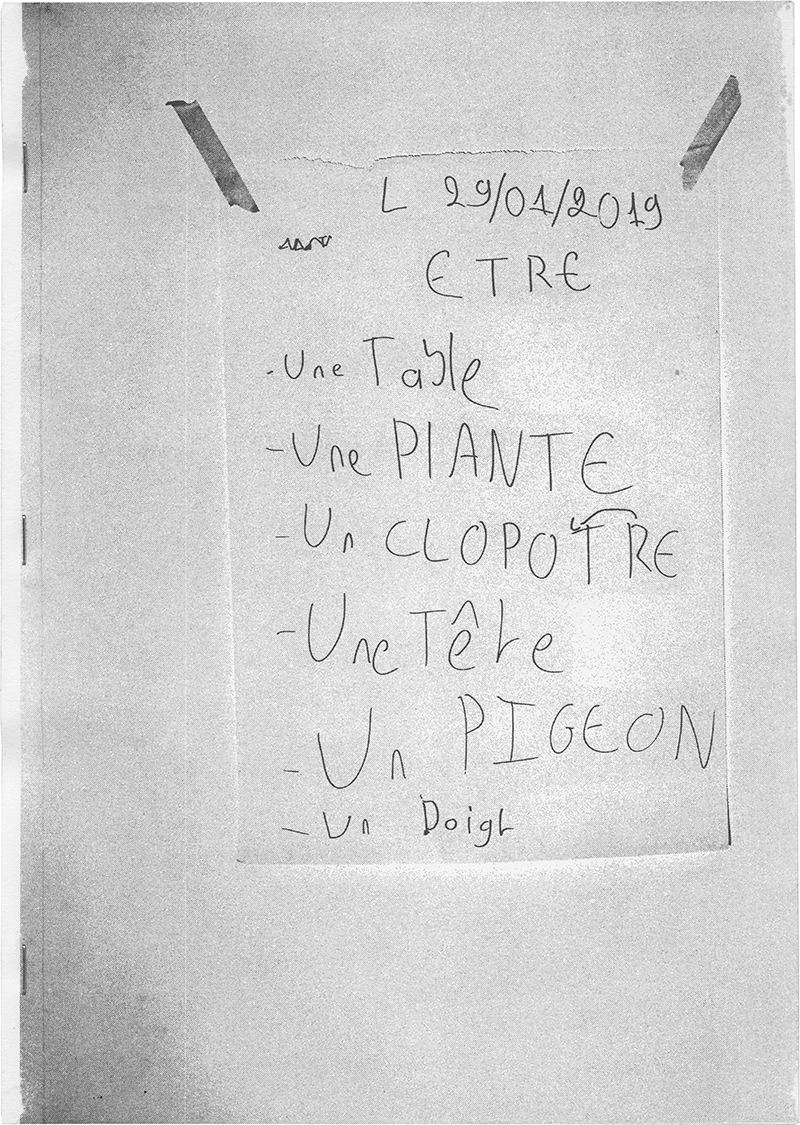 L 29/01/2019
ETRE
- Une Table
- Une PlANTE
- Un CLOPOTRE
- Une Tête
- Un PIGEON
- Un Doigt